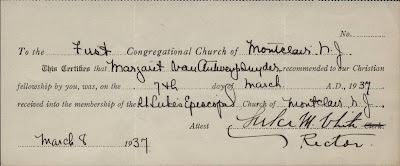 No.
To the First Congregational Church of Montclair N.J.
This Certifies that Margaret Van Antwerp Snyder recommended to our Christian
fellowship by you, was, on the 7th day of March A.D., 1937
received into the membership of the St Luke's Episcopal Church of Montclair N.J.
Attest Luke M. White Clerk.
March 8 1937 Rector